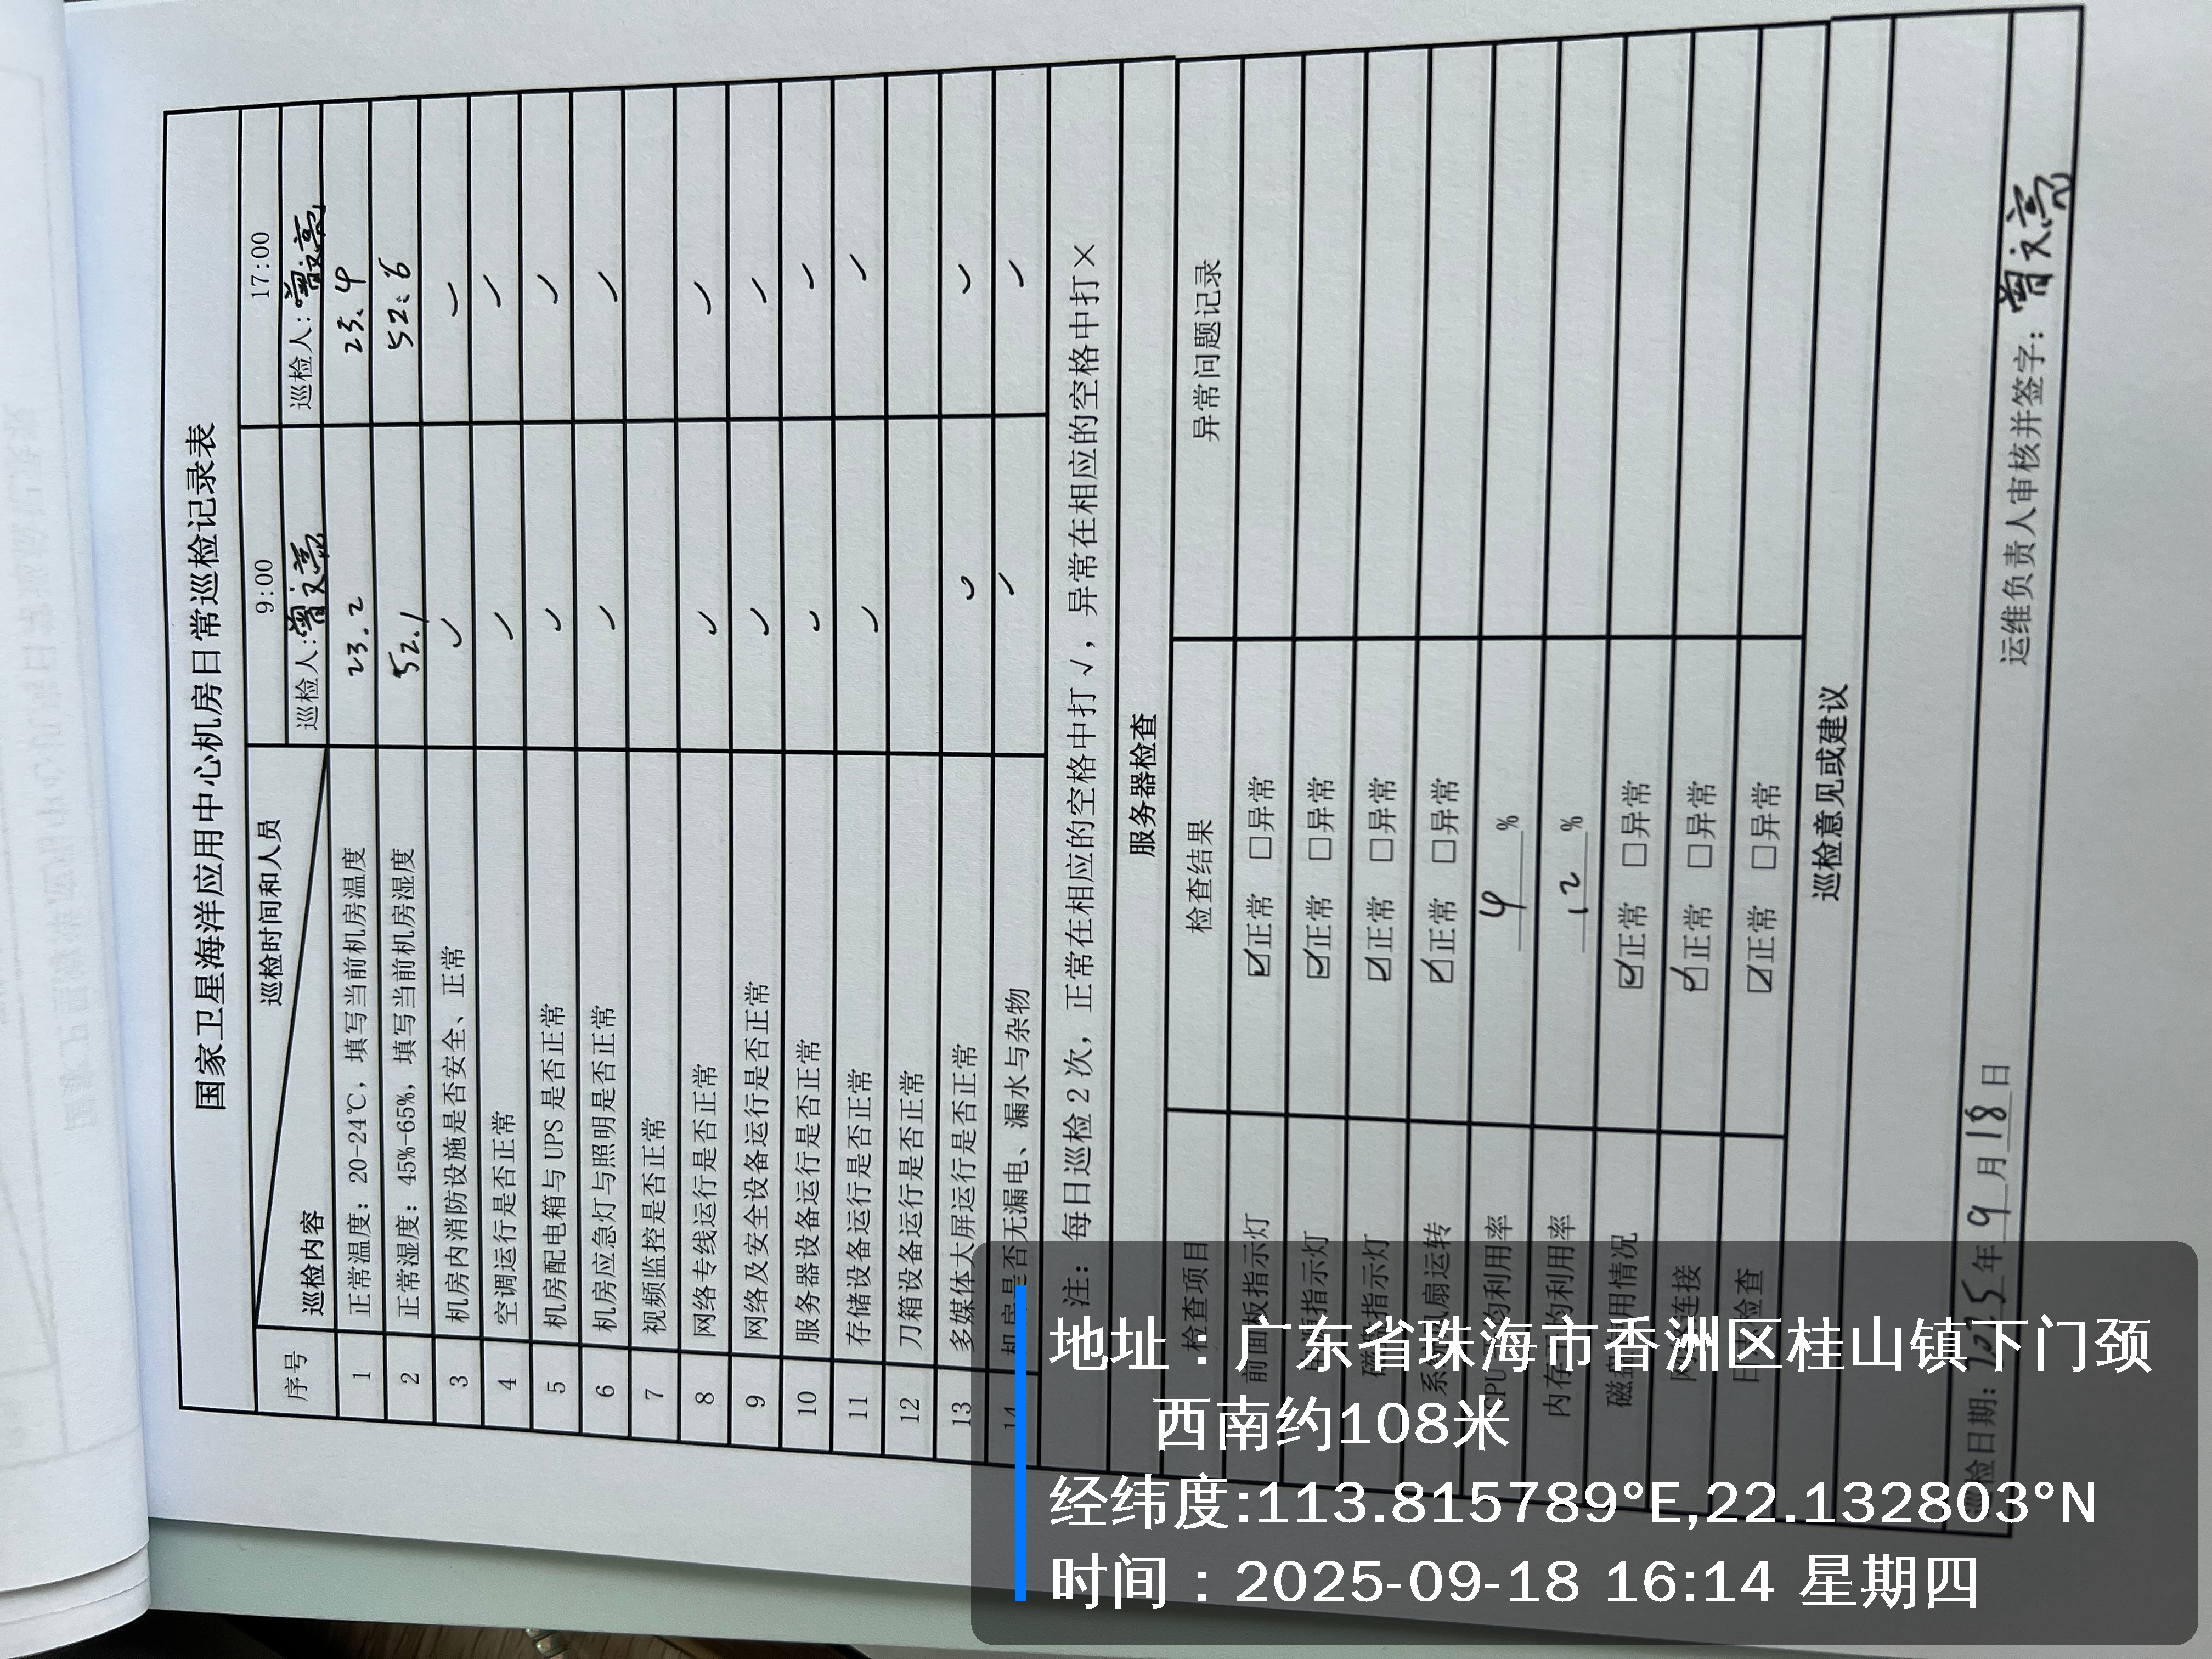 国家卫星海洋应用中心机房日常巡检记录表
巡检时间和人员 9:00 17:00
序号 巡检内容 巡检人:曾文亮 巡检人:曾文亮
1 正常温度：20-24℃，填写当前机房温度 23.2 23.4
2 正常湿度：45%-65%，填写当前机房湿度 52.1 52.6
3 机房内消防设施是否安全、正常 ✓ ✓
4 空调运行是否正常 ✓ ✓
5 机房配电箱与 UPS 是否正常 ✓ ✓
6 机房应急灯与照明是否正常 ✓ ✓
7 视频监控是否正常
8 网络专线运行是否正常 ✓ ✓
9 网络及安全设备运行是否正常 ✓ ✓
10 服务器设备运行是否正常 ✓ ✓
11 存储设备运行是否正常 ✓ ✓
12 刀箱设备运行是否正常
13 多媒体大屏运行是否正常 ✓ ✓
14 机房是否无漏电、漏水与杂物 ✓ ✓
注：每日巡检 2 次，正常在相应的空格中打 √，异常在相应的空格中打×
服务器检查
检查项目 检查结果 异常问题记录
前面板指示灯 ☑正常 □异常
指示灯 ☑正常 □异常
指示灯 ☑正常 □异常
系统风扇运转 ☑正常 □异常
CPU平均利用率 4 %
内存平均利用率 12 %
磁盘利用情况 ☑正常 □异常
连接 ☑正常 □异常
检查 ☑正常 □异常
巡检意见或建议
巡检日期：2025年9月18日 运维负责人审核并签字：曾文亮
地址：广东省珠海市香洲区桂山镇下门颈
西南约108米
经纬度:113.815789°E,22.132803°N
时间：2025-09-18 16:14 星期四